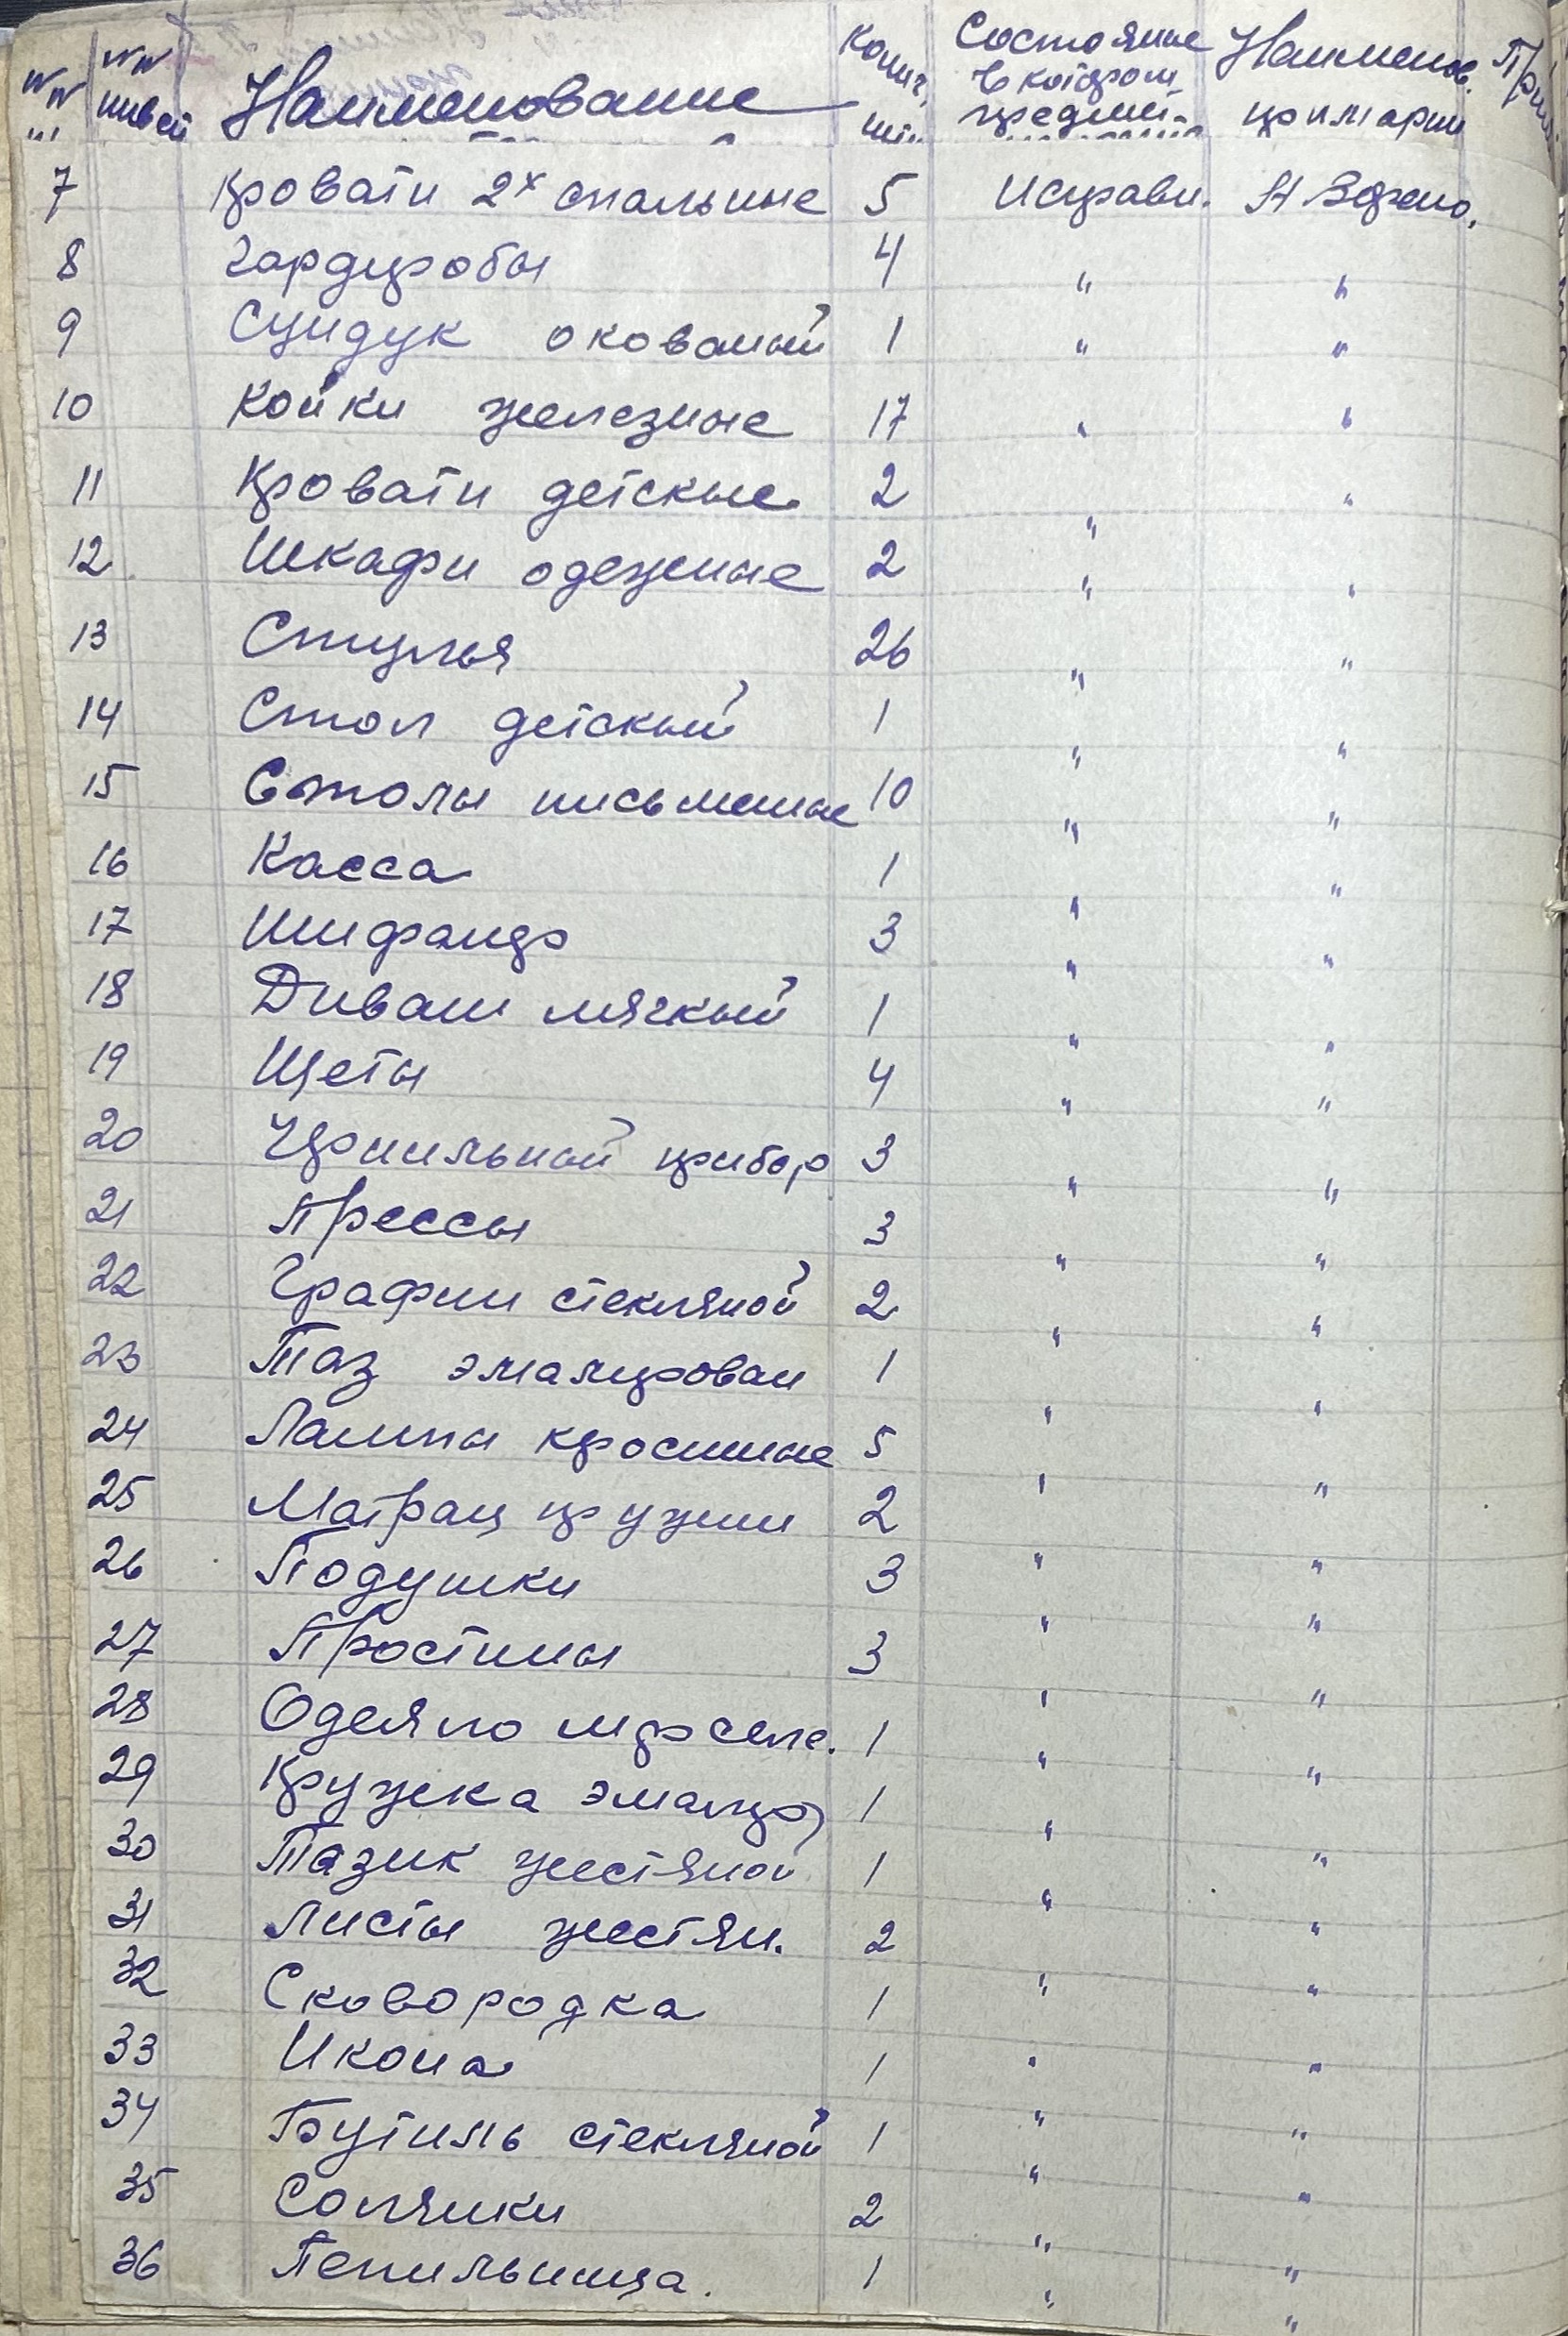 NN NN инвен Наименование Колич. Состояние в котором Наименов. примарии
7 Кровати 2х спальные 5 Исправн. Н Зорено,
8 Гардеробы 4 " "
9 Сундук окованый 1 " "
10 Койки железные 17 " "
11 Кровати детские 2 " "
12 Шкафи одежные 2 " "
13 Стулья 26 " "
14 Стол детский 1 " "
15 Столы письменые 10 " "
16 Касса 1 " "
17 Шифанер 3 " "
18 Диван мягкий 1 " "
19 Щеты 4 " "
20 Чернильной прибор 3 " "
21 Прессы 3 " "
22 Графин стекляной 2 " "
23 Таз эмалирован 1 " "
24 Лампы кросиные 5 " "
25 Матрац пружин 2 " "
26 Подушки 3 " "
27 Простины 3 " "
28 Одеяло 1 " "
29 Кружка эмалир 1 " "
30 Тазик жестяной 1 " "
31 Листы жестян. 2 " "
32 Сковородка 1 " "
33 Икона 1 " "
34 Бутиль стекляной 1 " "
35 Солянки 2 " "
36 Пепильница. 1 " "